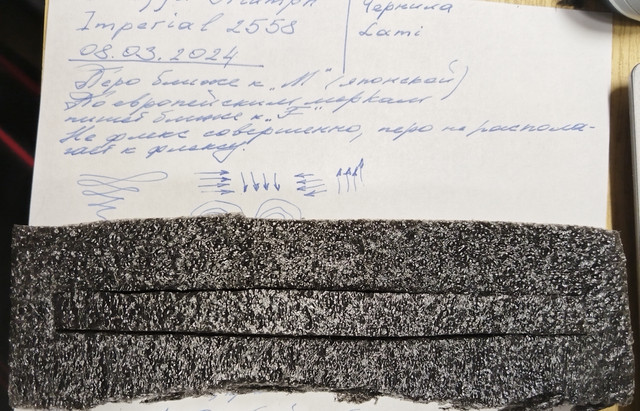 Triumph
Imperial 2558
08.03.2024
Чернила
Lami
Перо ближе к „М" (японской)
По европейским меркам
пишет ближе к „F"
Не флекс совершенно, перо не распола-
гает к флексу!